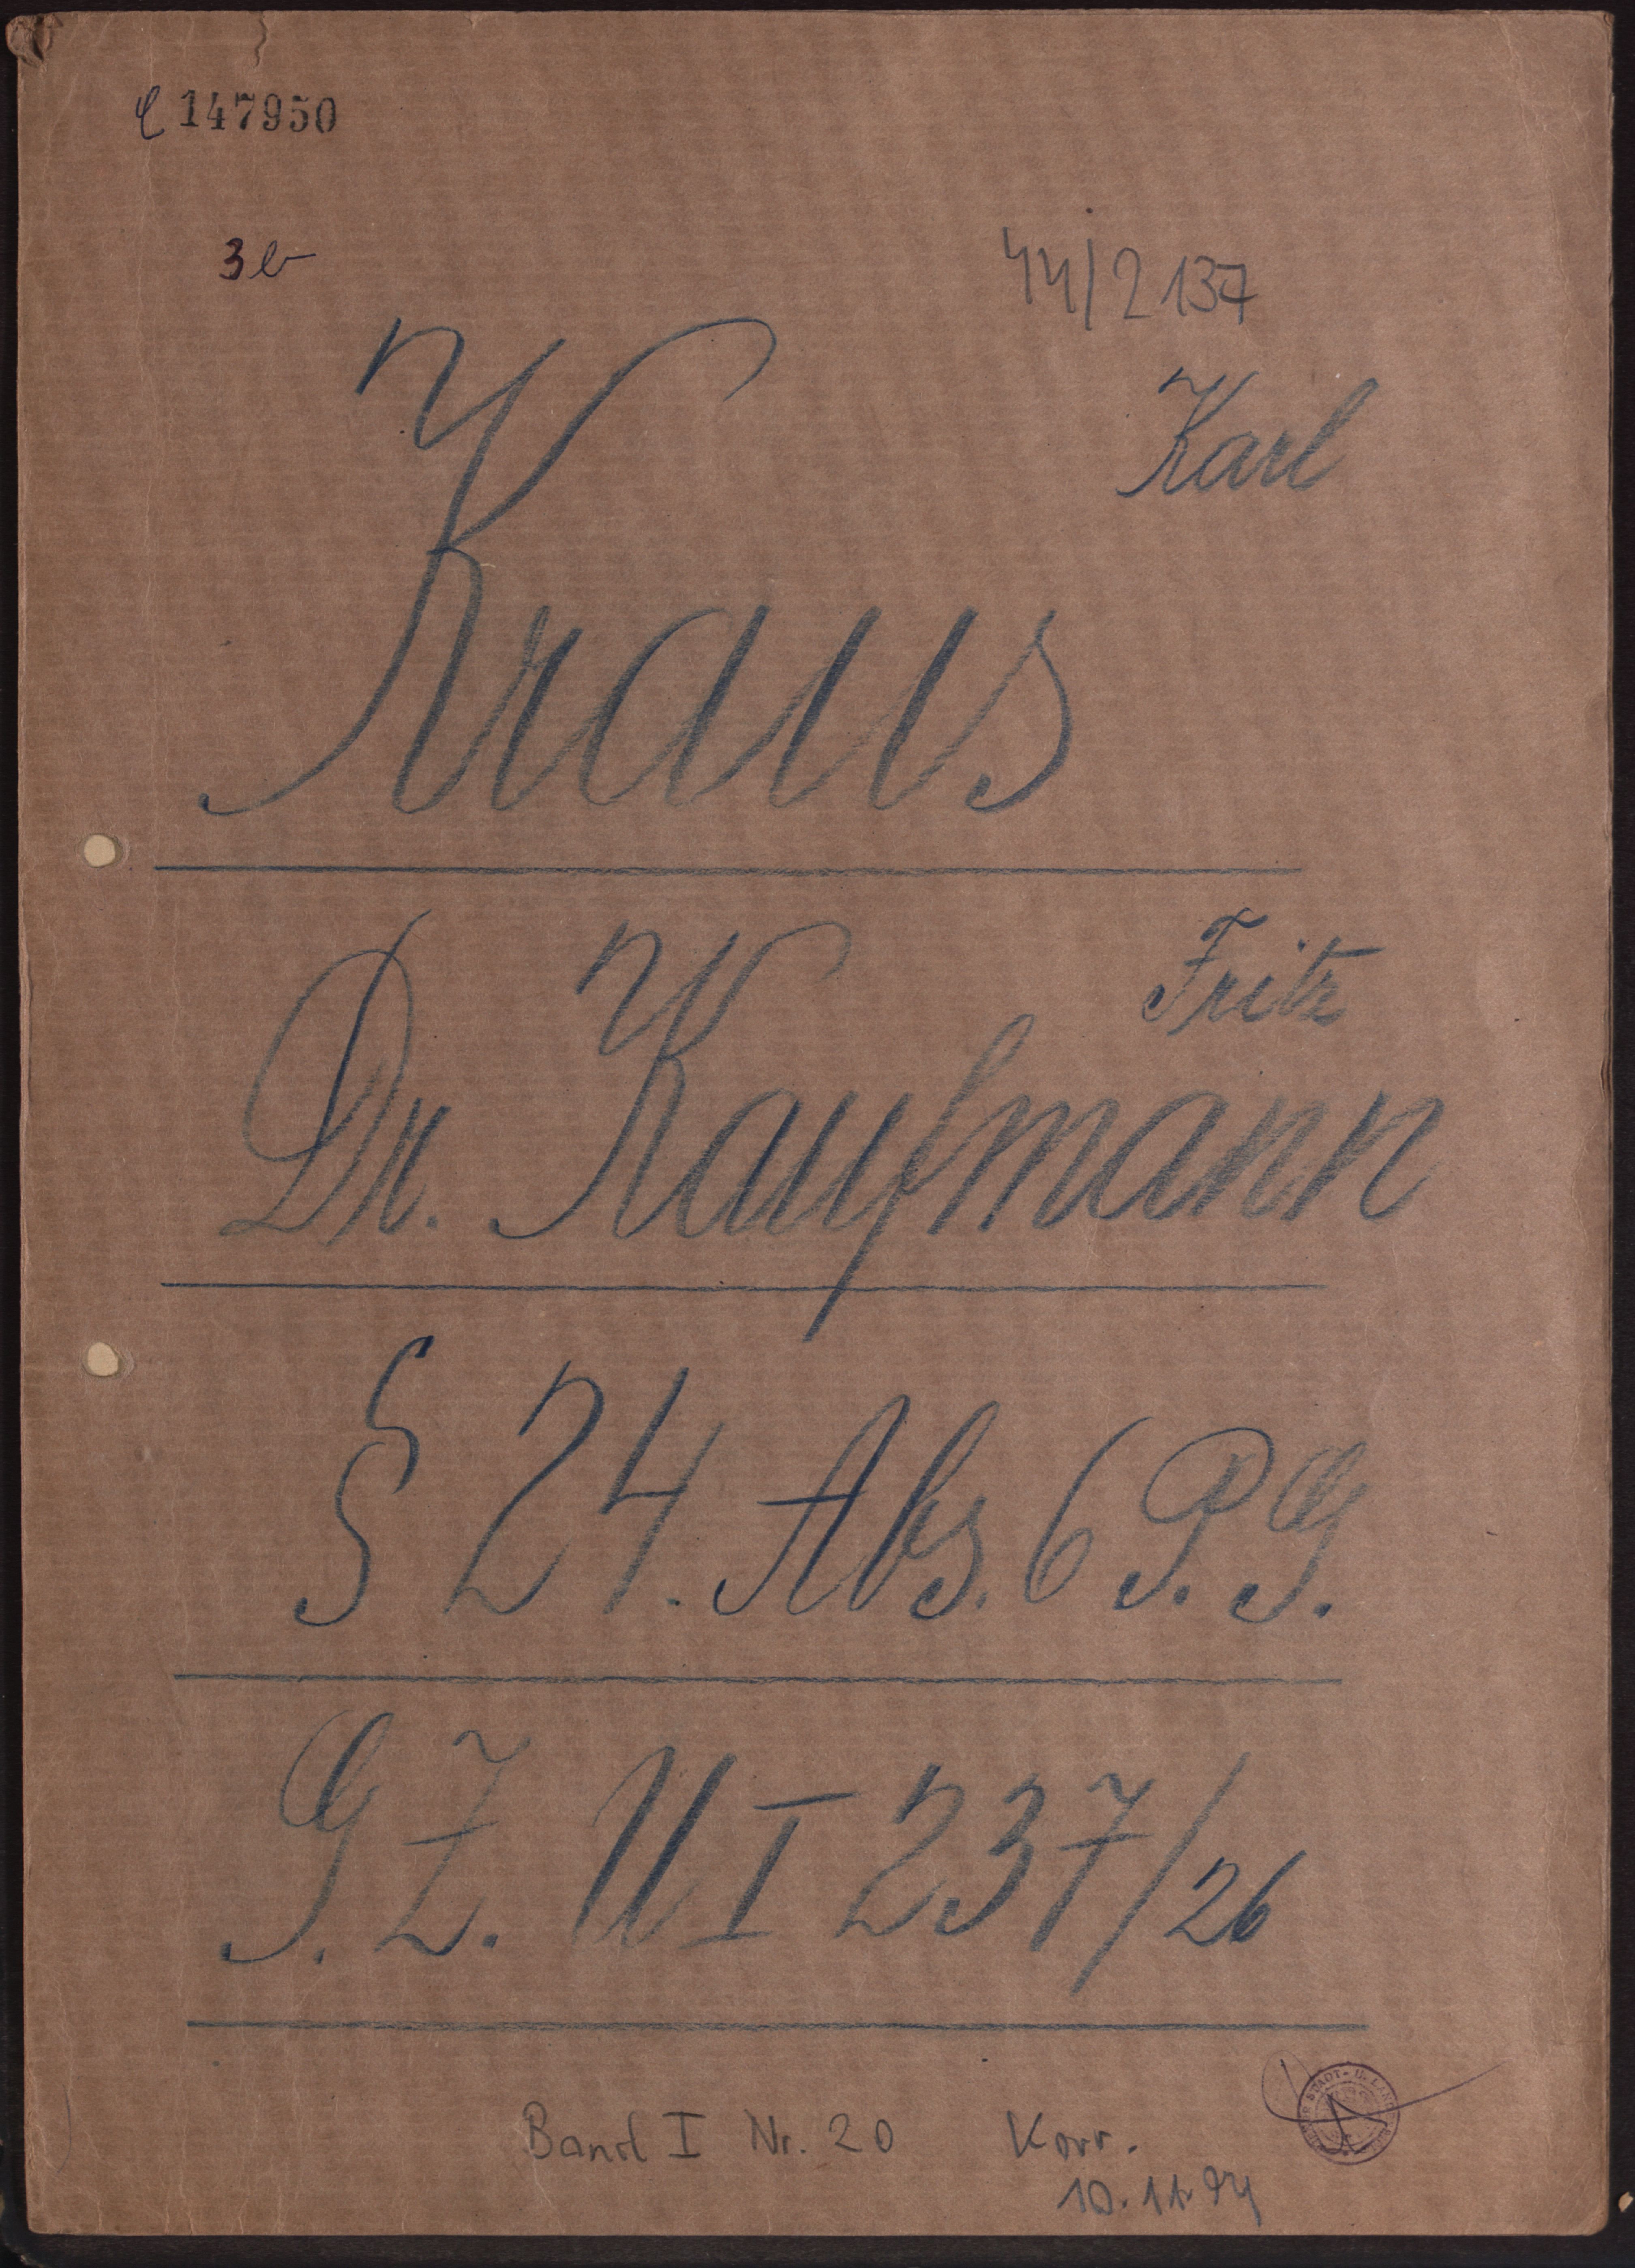 147950
3b
44/2137
Karl
Kraus
Fritz
Dr. Kaufmann
§ 24. Abs. 6 P. G.
G. Z. U I 237/26
Band I Nr. 20 Korr.
10.11.94